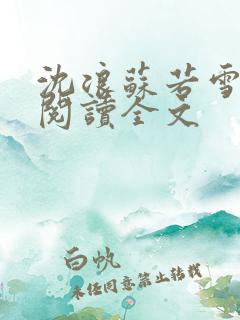 沈浪蘇若雪
閱讀全文
白帆
未经同意禁止转载